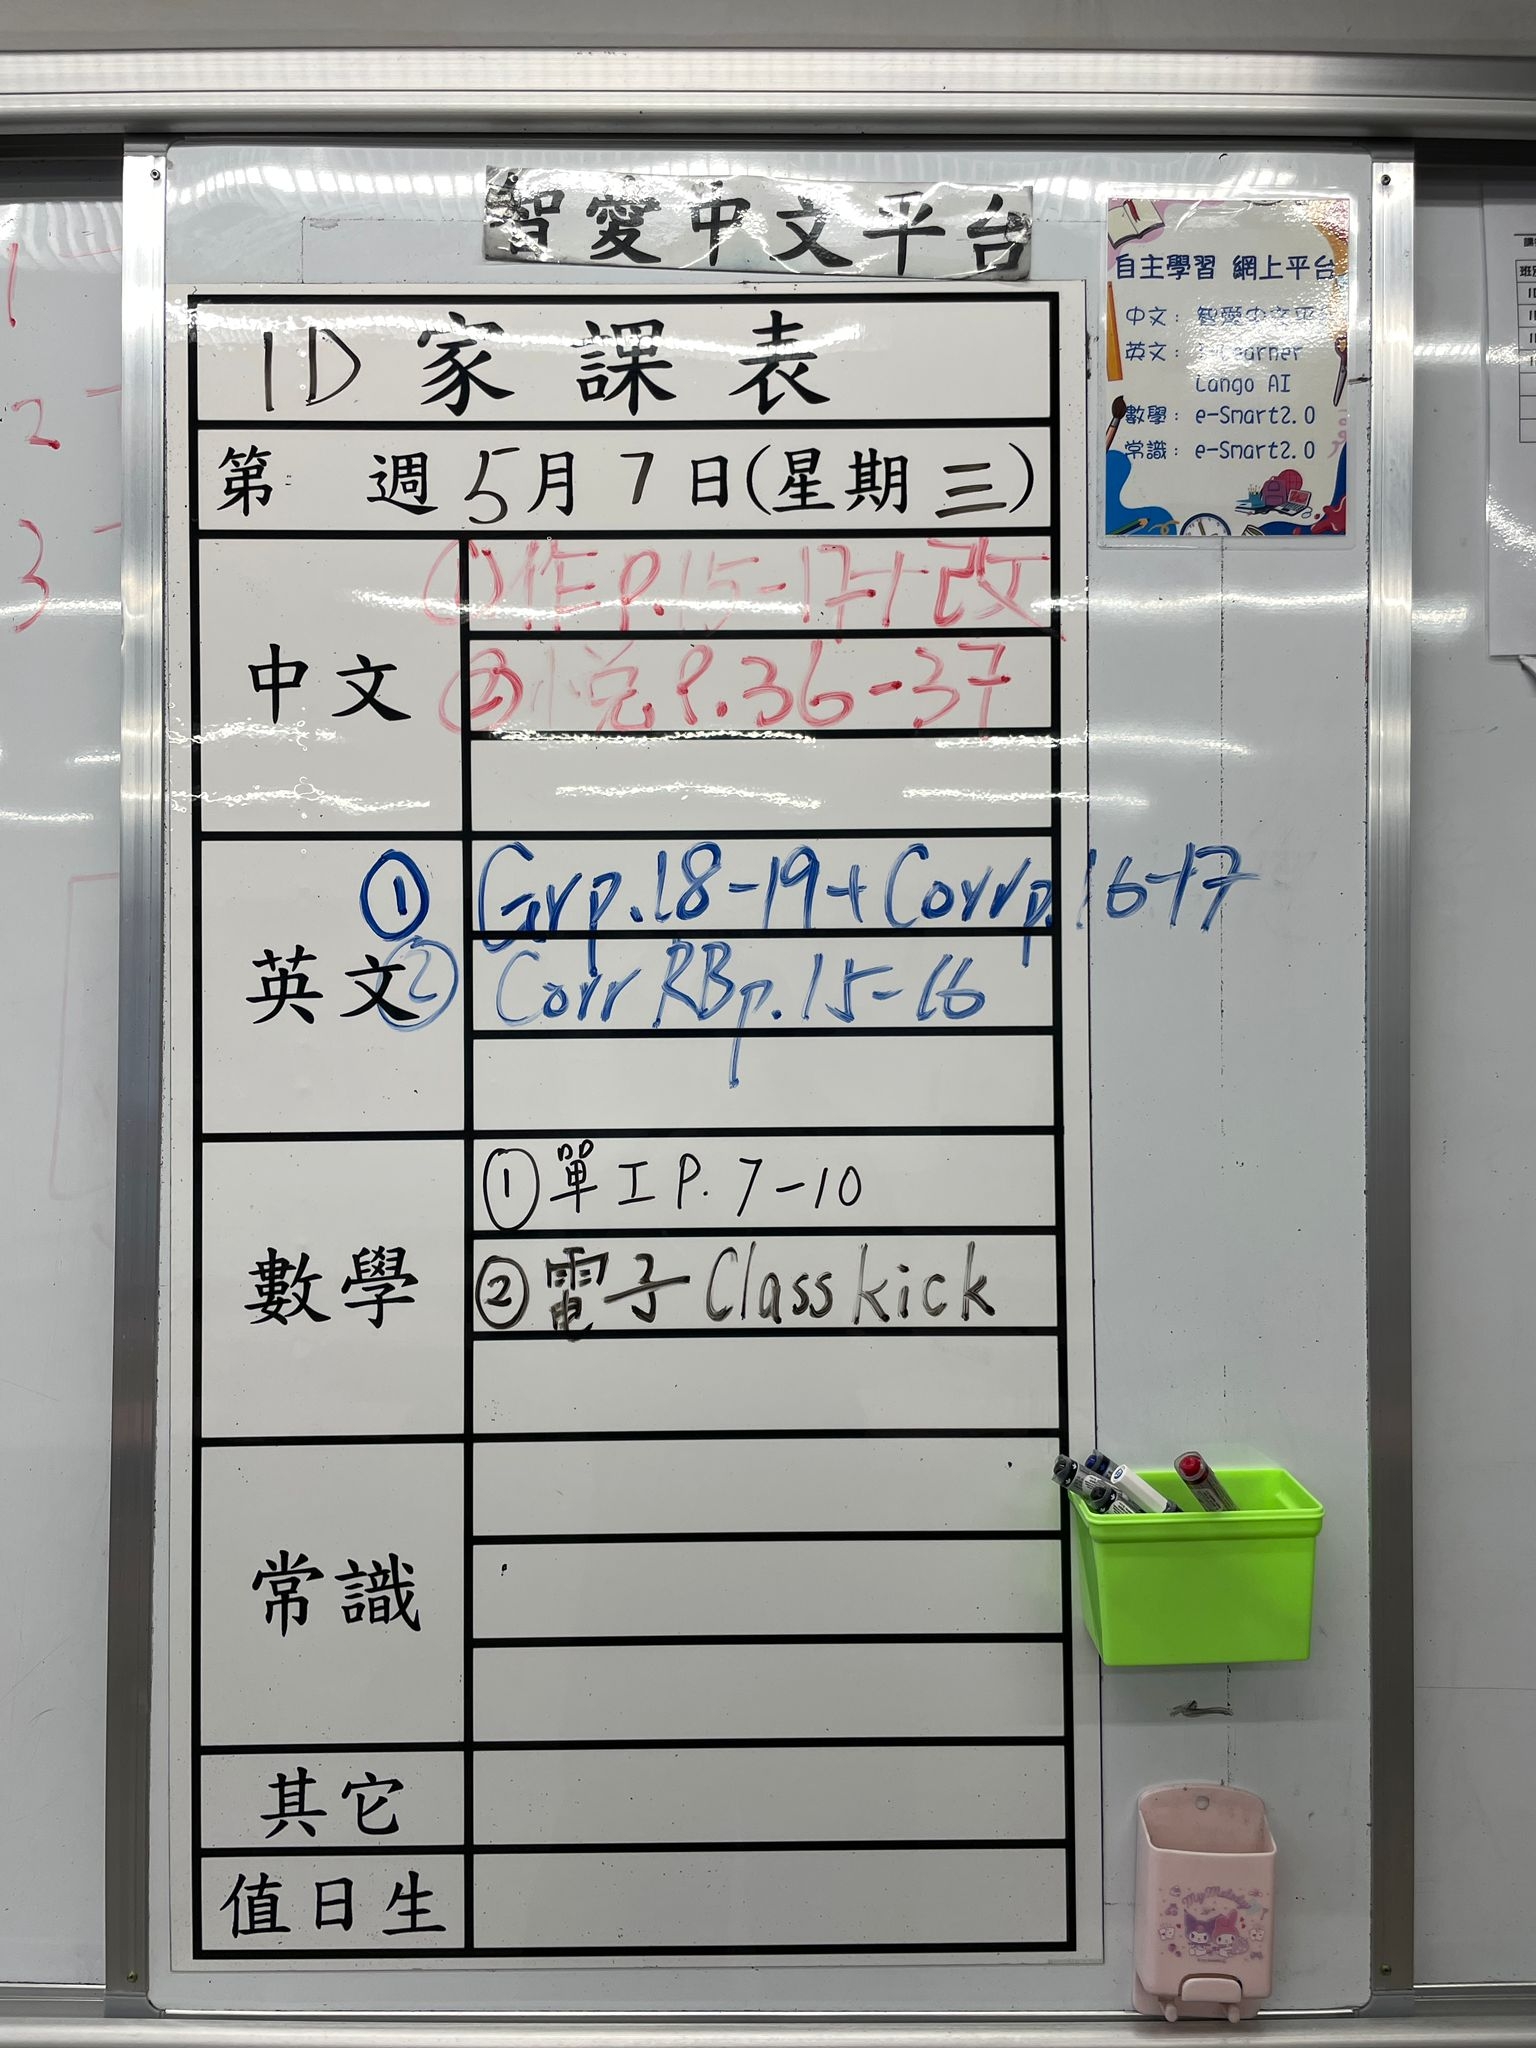 智愛中文平台
自主學習 網上平台
中文：智愛中文平台
英文：i-Learner
Lango AI
數學：e-Smart2.0
常識：e-Smart2.0
1D 家課表
第 週 5月7日(星期三)
中文
①作P.15-17+改
②悅P.36-37
英文
① Grp.18-19+Corrp.16-17
② Corr RBp.15-16
數學
①單工P.7-10
②電子Classkick
常識
其它
值日生
1
2
3
My Melody